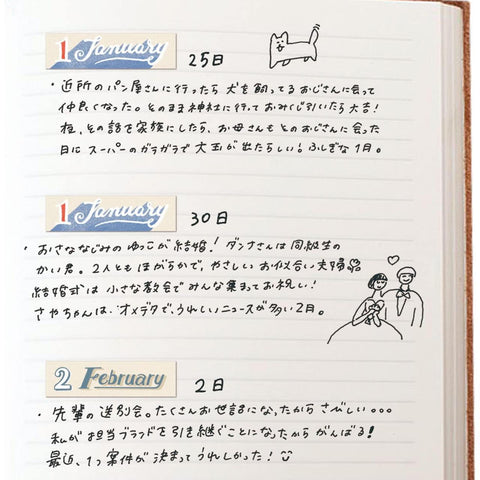 1 January 25日
・近所のパン屋さんに行ったら犬を飼ってるおじさんに会って
仲良くなった。そのまま神社に行っておみくじ引いたら大吉!
その話を家族にしたら、お母さんもそのおじさんに会った
日にスーパーのガラガラで大玉が出たらしい!ふしぎな1月。
1 January 30日
・おさななじみのゆっこが結婚!ダンナさんは同級生の
かい君。2人ともほがらかで、やさしいお似合い夫婦
結婚式は小さな教会でみんな集まってお祝い!
さやちゃんは、オメデタで、うれしいニュースが多い2日。
2 February 2日
・先輩の送別会。たくさんお世話になったからさびしい。。。
私がお担当ブランドを引き継ぐことになったからがんばる!
最近、1つ案件が決まってうれしかった!